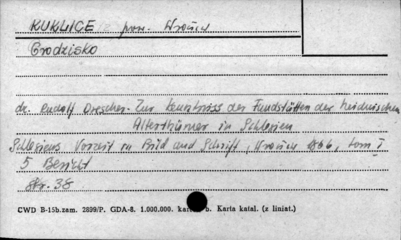 KUKLICE pow. Wrocław
Grodzisko
dr. Rudolf Drescher. Zur Kenntniss der Fundstätten der heidnischen
Alterthümer in Schlesien
Schlesiens Vorzeit in Bild und Schrift, tom I
5 Bericht
str. 38
CWD B-15b.zam. 2899/P. GDA-8. 1.000.000. b. Karta katal. (z liniat.)